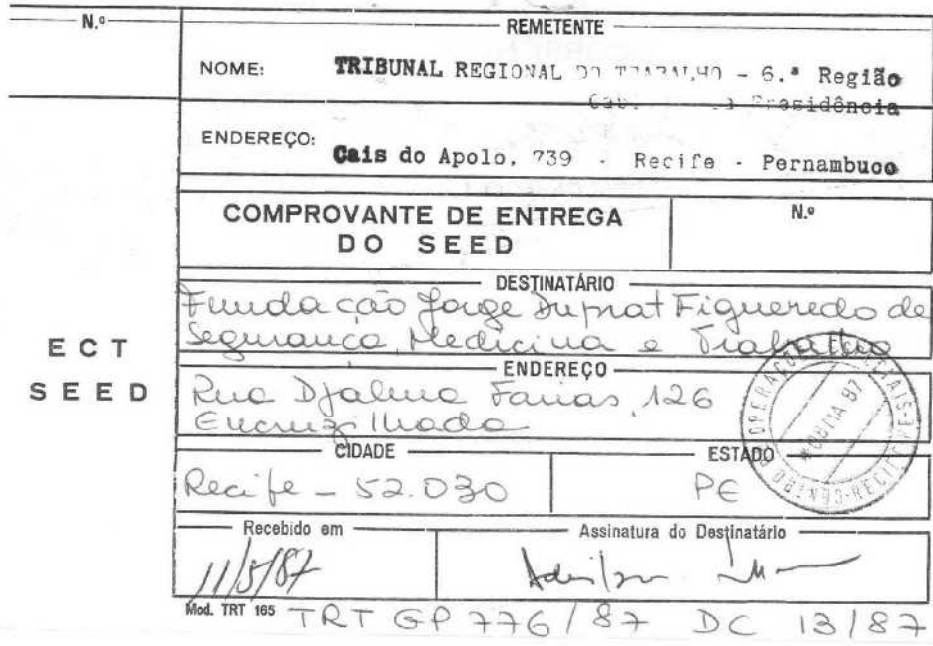 N.º
REMETENTE
NOME: TRIBUNAL REGIONAL DO TRABALHO - 6.ª Região
Presidência
ENDEREÇO:
Cais do Apolo, 739 - Recife - Pernambuco
COMPROVANTE DE ENTREGA
DO SEED
N.º
DESTINATÁRIO
Fundação Jorge Duprat Figueredo de
Segurança, Medicina e Trabalho
ECT
SEED
ENDEREÇO
Rua Djalma Farias, 126
Encruzilhada
CIDADE
Recife - 52.030
ESTADO
PE
08 MA 87
Recebido em
11/5/87
Assinatura do Destinatário
Mod. TRT 165
TRT GP 776/87 DC 13/87